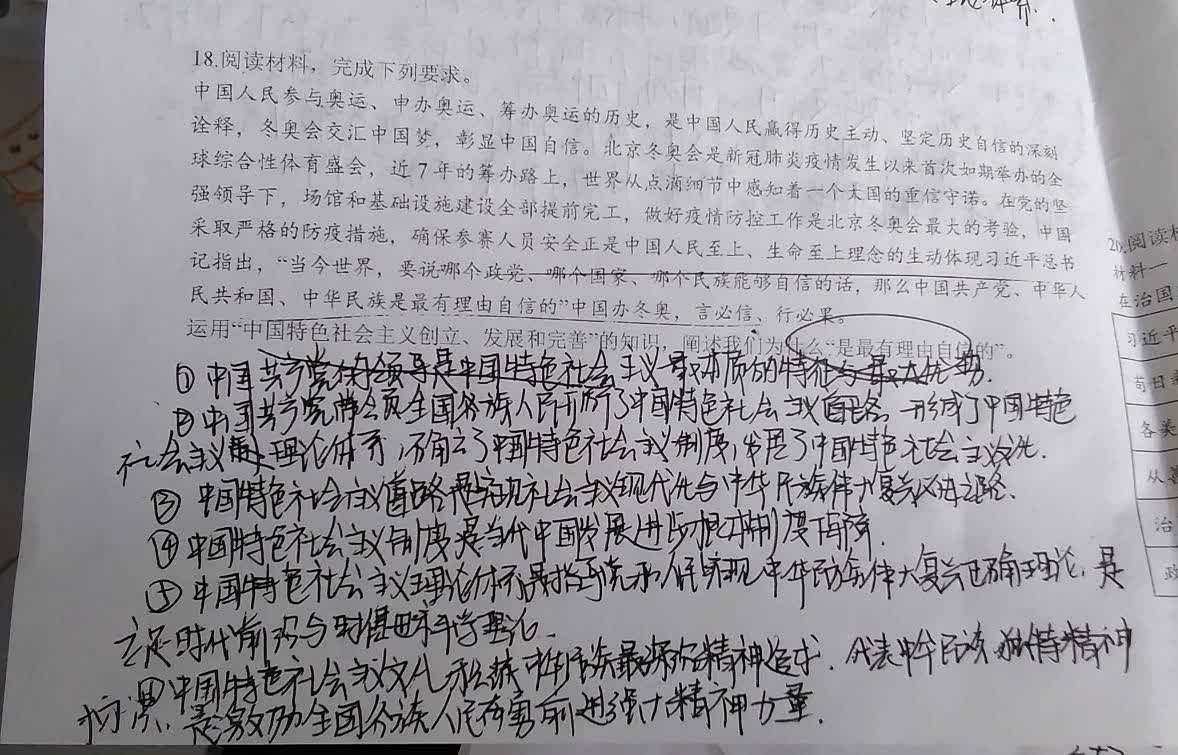 18.阅读材料，完成下列要求。
中国人民参与奥运、申办奥运、筹办奥运的历史，是中国人民赢得历史主动、坚定历史自信的深刻
诠释，冬奥会交汇中国梦，彰显中国自信。北京冬奥会是新冠肺炎疫情发生以来首次如期举办的全
球综合性体育盛会，近7年的筹办路上，世界从点滴细节中感知着一个大国的重信守诺。在党的坚
强领导下，场馆和基础设施建设全部提前完工，做好疫情防控工作是北京冬奥会最大的考验，中国
采取严格的防疫措施，确保参赛人员安全正是中国人民至上、生命至上理念的生动体现习近平总书
记指出，“当今世界，要说哪个政党、哪个国家、哪个民族能够自信的话，那么中国共产党、中华人
民共和国、中华民族是最有理由自信的”中国办冬奥，言必信、行必果。
运用“中国特色社会主义创立、发展和完善”的知识，阐述我们为什么“是最有理由自信的”。
①中国共产党的领导是中国特色社会主义最本质的特征与最大优势.
②中国共产党带全国各族人民开辟了中国特色社会主义道路,形成了中国特色
社会主义理论体系,确立了中国特色社会主义制度,发展了中国特色社会主义文化.
③中国特色社会主义道路是实现社会主义现代化与中华民族伟大复兴必由之路.
④中国特色社会主义制度是当代中国发展进步根本制度保障.
⑤中国特色社会主义理论体系是指导党和人民实现中华民族伟大复兴正确理论,是
立足时代前沿与时俱进科学理论.
中国特色社会主义文化积蕴中华民族最深沉精神追求.代表中华民族独特精神
标识.是激励全国各族人民奋勇前进强大精神力量.
20.阅读材
材料一
在治国
习近平
苟日新
各美
从善
治
政